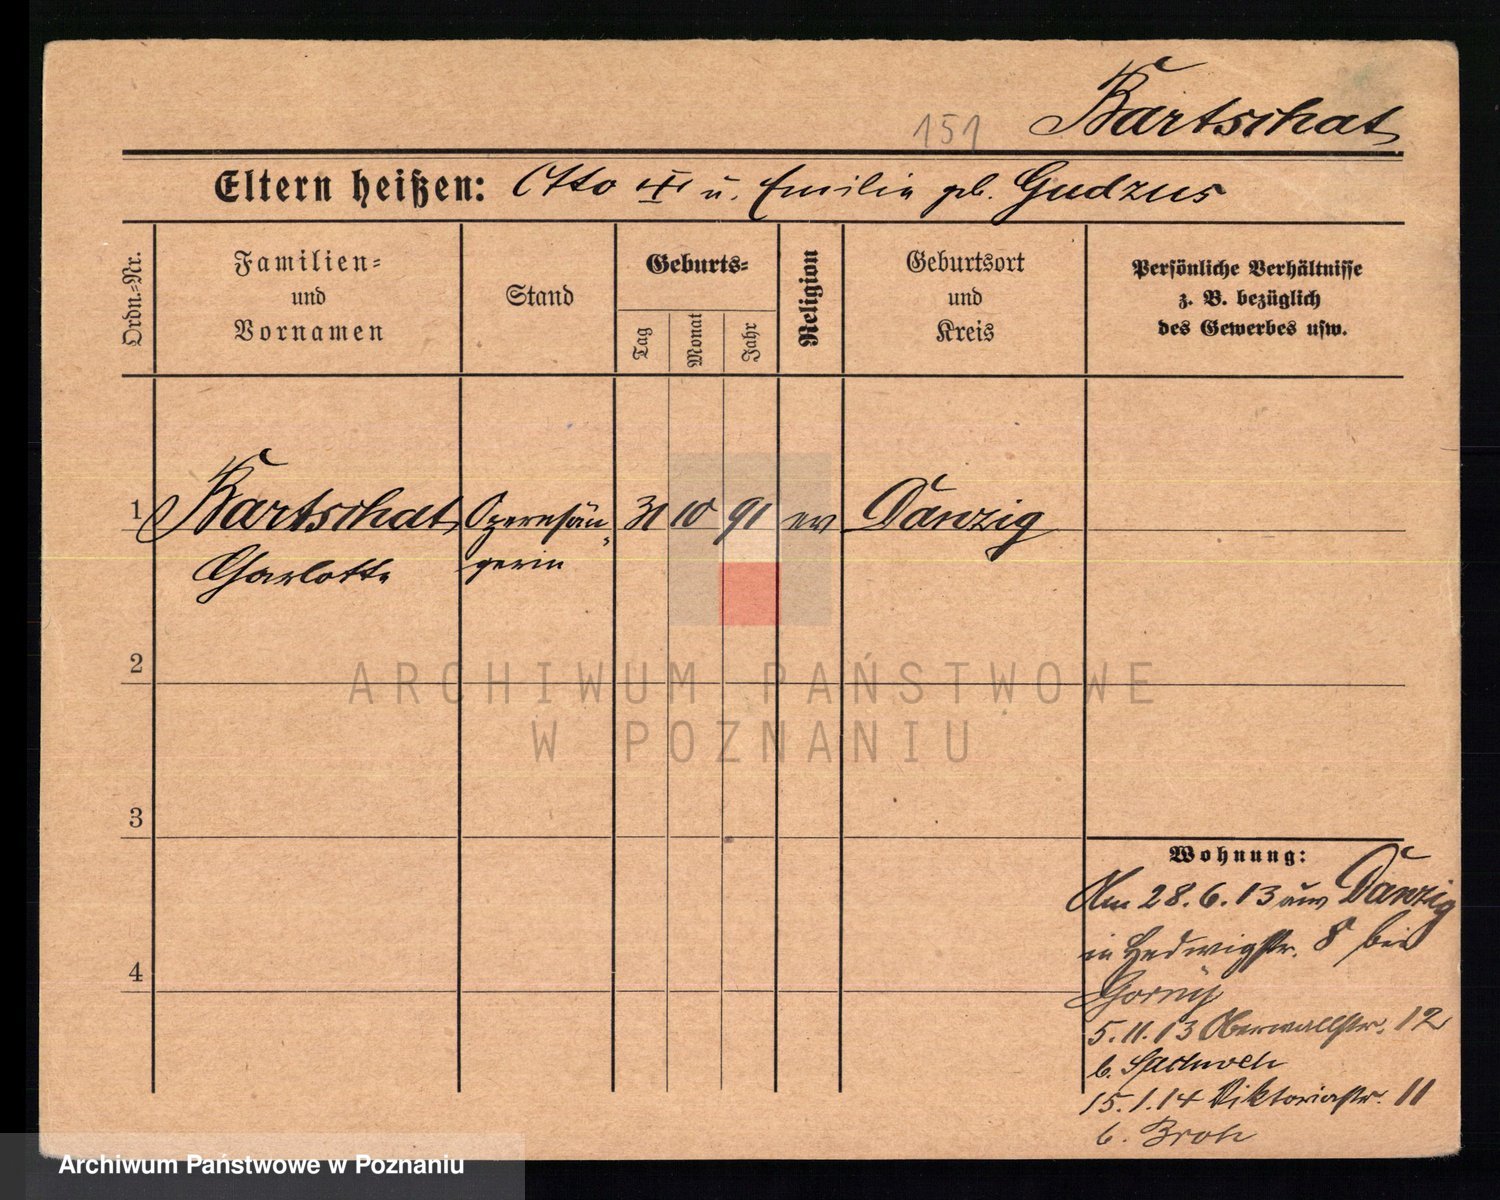 Bartschat
151
Eltern heißen: Otto u. Emilie geb. Gudzus
Ordn.-Nr.
Familien-
und
Vornamen
Stand
Geburts-
Tag
Monat
Jahr
Religion
Geburtsort
und
Kreis
Persönliche Verhältnisse
z. B. bezüglich
des Gewerbes usw.
1 Bartschat Opernsän- 31 10 91 ev Danzig
Charlotte gerin
2
ARCHIWUM PAŃSTWOWE
W POZNANIU
3
Wohnung:
Am 28.6.13 aus Danzig
in Hedwigstr. 8 bei
4
Gorny
5.11.13 Oberwallstr. 12
b.
15.1.14 Viktoriastr. 11
b. Broh
Archiwum Państwowe w Poznaniu